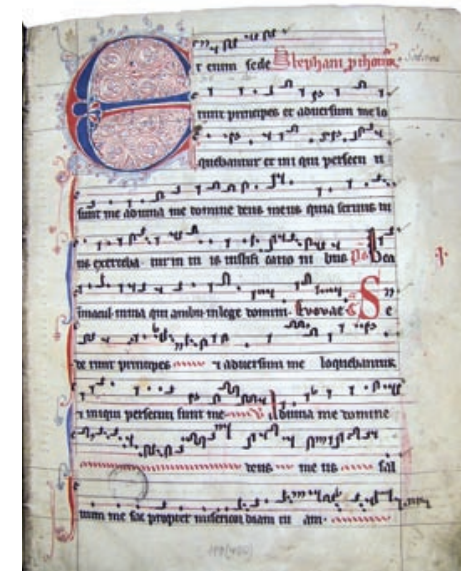 Et enim sede Stephani
runt principes et aduersum me lo
quebantur et ini qui persecu ti
sunt me adiuua me domine deus meus quia seruus tu
us exerceba tur in tu is iustifi catio ni bus Bea
qui ambu in lege domini. Euouae Se
de runt principes et aduersum me loquebantur
et iniqui persecuti sunt me Adiuua me domine
deus me us sal
uum me fac propter misericordiam tu am.